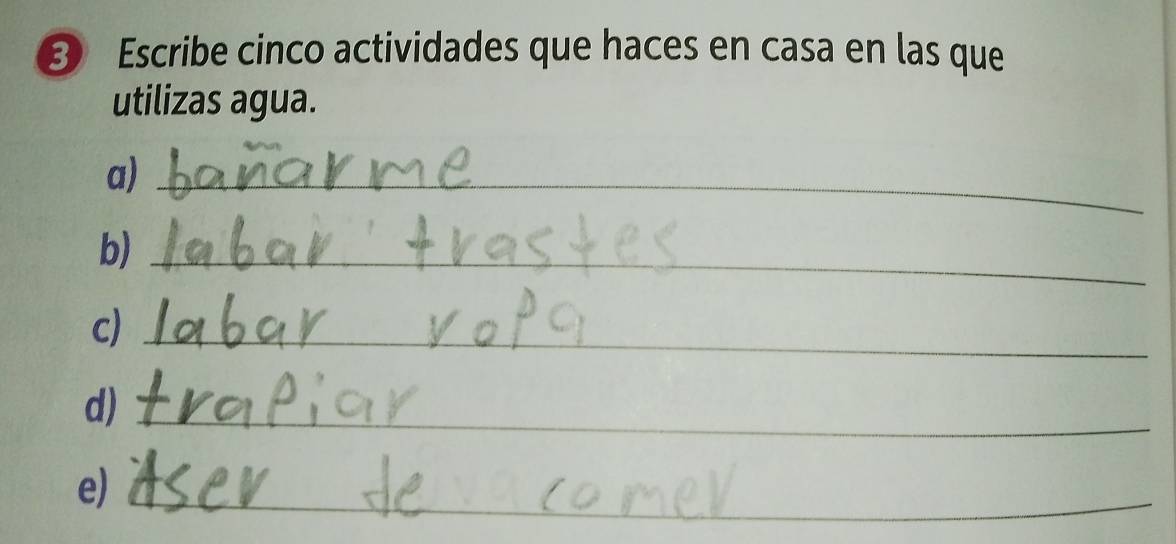 3 Escribe cinco actividades que haces en casa en las que
utilizas agua.
a) bañarme
b) labar trastes
c) labar ropa
d) trapiar
e) Aser de comer